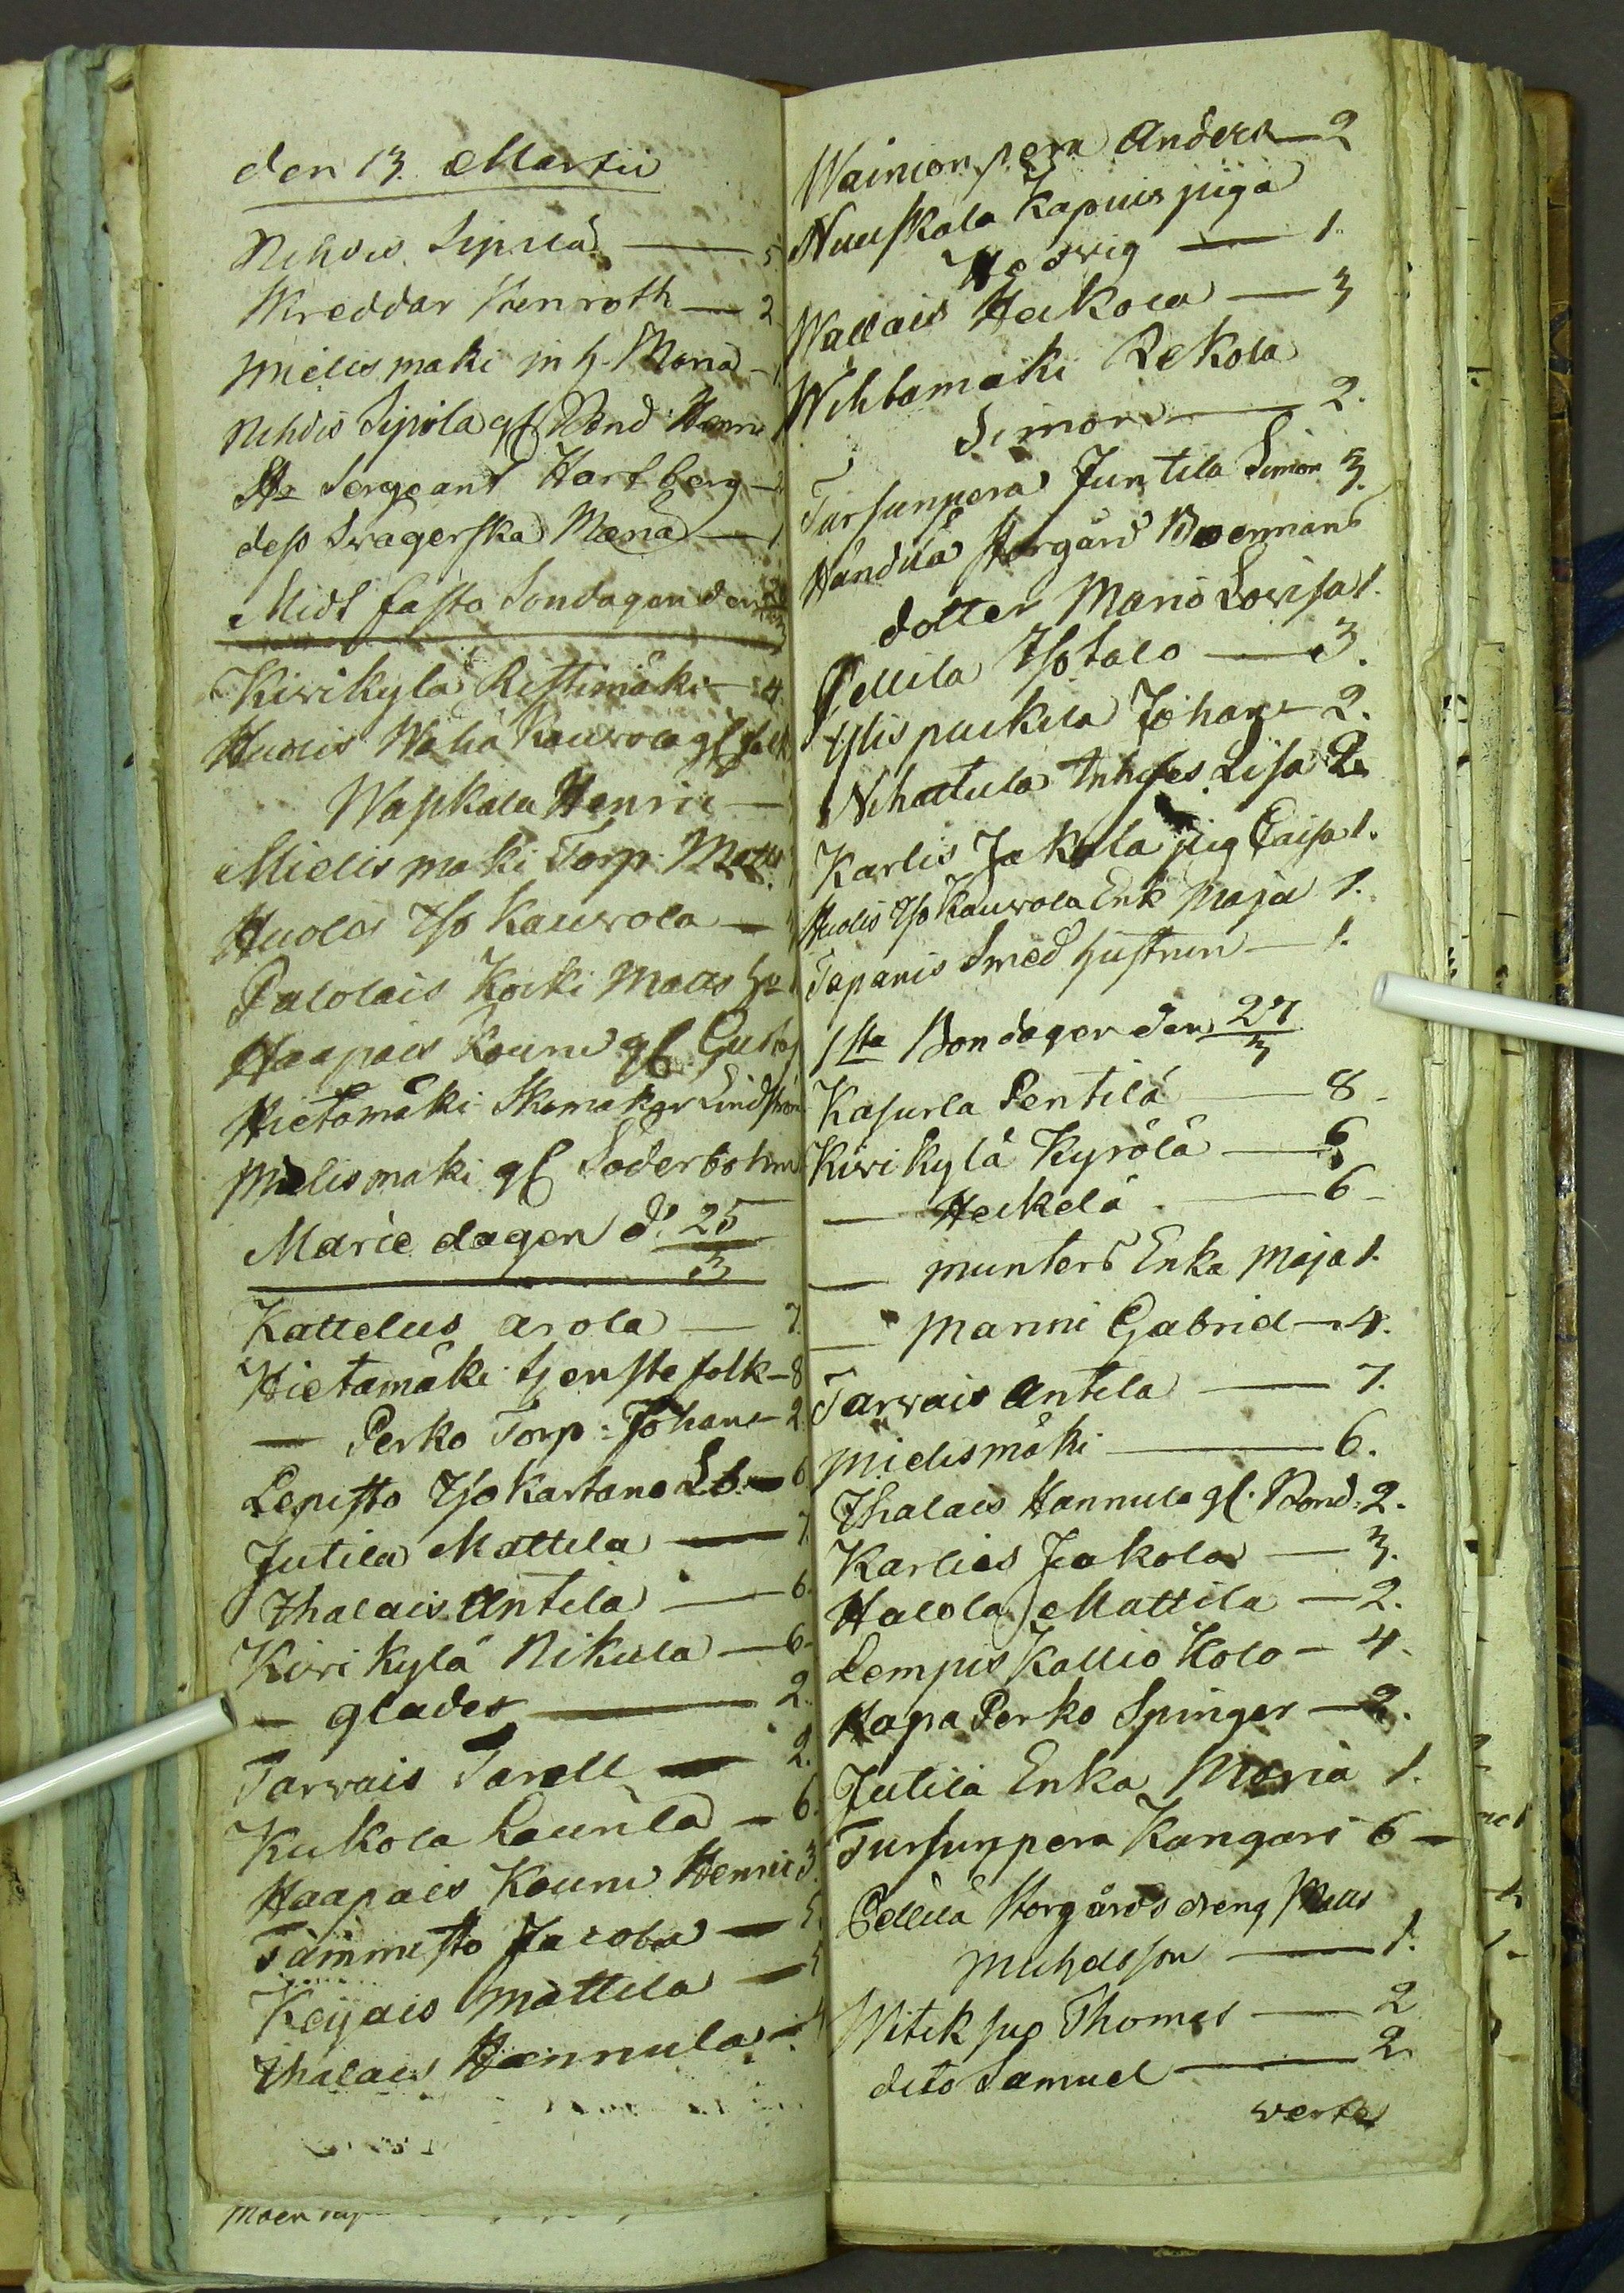 den 13. Martii
Nihois Sipilä — 5.
Skreddar Kenroth — 2
Mielismäki in h. Maria — 1.
Nihois Sipila gf Bond Henric
Sergeant Hartberg —
dess Swagerska Maria — 1
Midt fasto Sondagen den 20/3
Kirikylä Ristimäki — 4.
Huolis Wähä Kauvola gf folk
Waskala Henric —
Mielismäki Torp: Matts
Huolis Iso Kauvola —
Palolais Kocki Matts
Haapais Kouru gf. Gustaf
Hietämäki Skomakar Lindström
Mielismäki gf Söderbohm
Marie dagen d. 25/3
Kattelus arola — 7.
Hietamäki tjenstefolk — 8
— Perko Torp: Johan — 2.
Lepistö Iso Kartano Lb — 6
Jutila Mattila — 7.
Ihalais Antila — 6.
Kirikylä Nikula — 6.
— glader — 2.
Tarvais Tarell — 2.
Kukola Laurila — 6.
Haapais Kouru Henric 3.
Tammisto Jacoba — 5.
Keijais Mattila — 5
Ihalais Hannula —
Wainionperä Anders — 2
Nuuskala Kapuis piga
Hedvig — 1.
Wallais Heikola — 3
Wihtamäki Rekola
Simon — 2.
Tursunperä Juntila Simon 3.
Händilä Storgård Boermans
dotter Maria Lovisa 1.
Pellila Isotalo — 3.
Ylis puikila Johan — 2.
Nihattula Inhyses Lisa 2.
Karlis Jakola pig Caisa 1.
Huolis Iso Kauvola Enk Maja 1.
Tapanis Smed hustrun — 1.
1sta Bondagen den 27/3
Kasurla Pentilä — 8 -
Kirikylä Kyrölä — 6
— Heikelä — 6 -
— Munters Enka Maja 1.
— Manni Gabriel — 4.
Tarvais Antila — 7.
Mielismäki — 6.
Ihalais Hannula gf. Bond: 2.
Karlies Jakola — 3.
Halola Mattila — 2.
Lempis Kallio Kolo — 4.
Kapa Perko Spinger — 2.
Jutila Enka Maria 1.
Tursunpera Kangari 6 —
Pellila Storgårds dreng Matts
Michelsson — 1.
Witiksuo Thomas — 2
dito Samuel — 2
verte